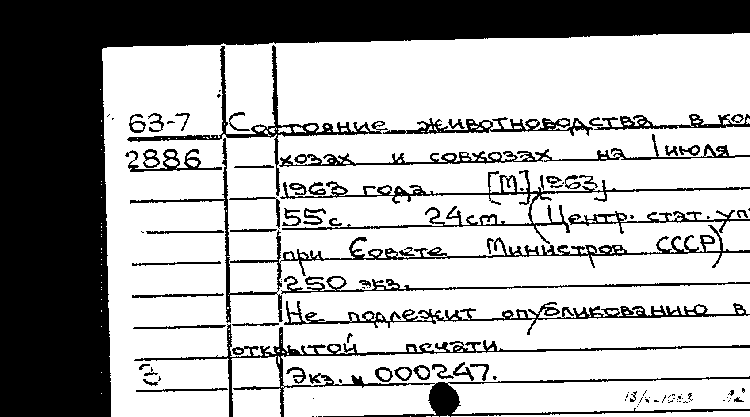 63-7 Состояние животноводства в кол
2886 хозах и совхозах на 1 июля
1963 года. [М.], 1963].
55 с. 24 см. (Центр. стат. уп
при Совете Министров СССР).
250 экз.
Не подлежит опубликованию в
открытой печати.
3 Экз. № 000247.